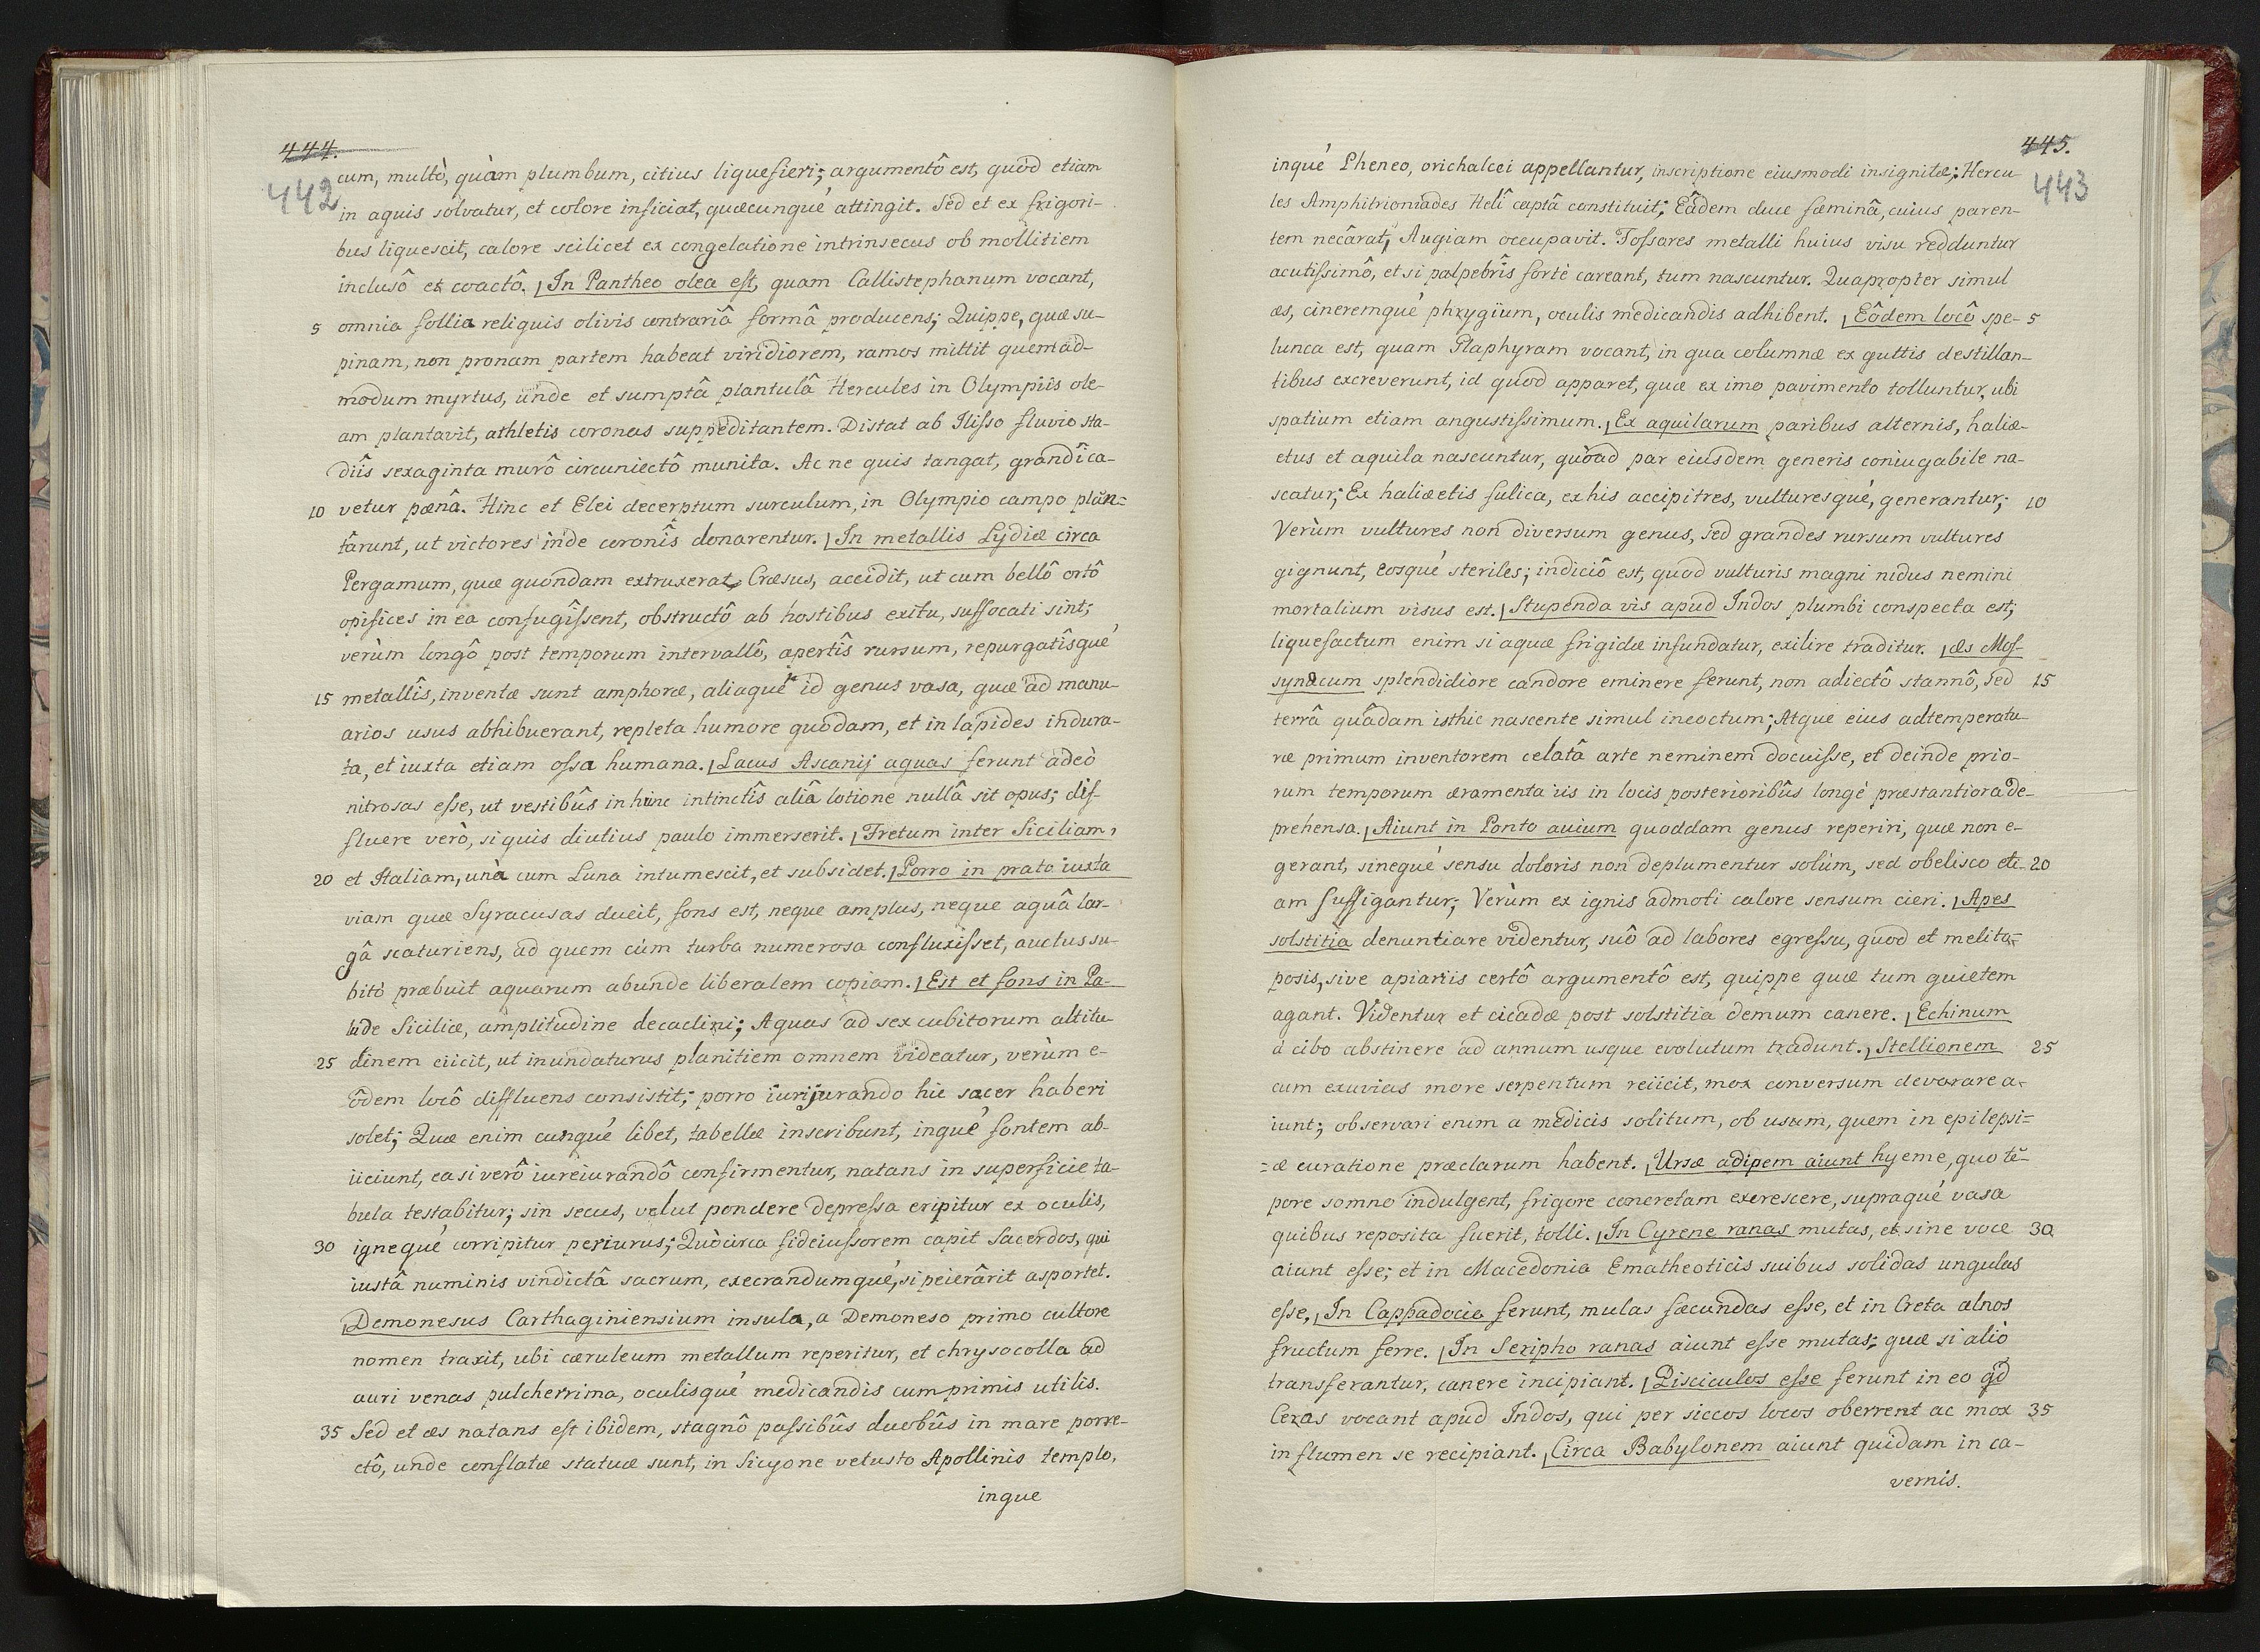 444.
442
cum, multò, quàm plumbum, citiùs liquefieri; argumentô est, quòd etiam
in aquis solvatur, et colore inficiat, quæcunqué attingit. Sed et ex frigori-
bus liquescit, calore scilicet ex congelatione intrinsecus ob mollitiem
inclusô et coactô. In Pantheo olea est, quam Callistephanum vocant,
5 omnia follia reliquis olivis contrariâ formâ producens; Quippe, quæ su-
pinam, non pronam partem habeat viridiorem, ramos mittit quemad-
modum myrtus, unde et sumptâ plantulâ Hercules in Olympiis ole-
am plantavit, athletis coronas suppeditantem. Distat ab Ilisso fluvio sta-
diîs sexaginta murô circuniectô munita. Ac ne quis tangat, grandî ca-
10 vetur pænâ. Hinc et Elei decerptum surculum, in Olympio campo plan-
târunt, ut victores inde coronîs donarentur. In metallis Lydiæ circa
Pergamum, quæ quondam extruxerat Cræsus, accidit, ut cum bellô ortô
opifices in ea confugîssent, obstructô ab hostibus exitu, suffocati sint;
verùm longô post temporum intervallô, apertîs rursum, repurgatîsqué
15 metallîs, inventæ sunt amphoræ, aliaqué id genus vasa, quæ ad manu-
arios usus abhibuerant, repleta humore quodam, et in lapides indura-
ta, et iuxta etiam ossa humana. Lacus Ascanij aquas ferunt adeò
nitrosas esse, ut vestibûs in hunc intinctîs aliâ lotione nullâ sit opus; dif-
fluere verò, si quis diutius paulo immerserit. Fretum inter Siciliam,
20 et Italiam, unà cum Luna intumescit, et subsidet. Porro in prato iuxta
viam quæ Syracusas ducit, fons est, neque amplus, neque aquâ lar-
gâ scaturiens, ad quem cùm turba numerosa confluxisset, auctus su-
bitò præbuit aquarum abunde liberalem copiam. Est et fons in Pa-
lude Siciliæ, amplitudine decaclini; Aquas ad sex cubitorum altitu-
25 dinem eiicit, ut inundaturus planitiem omnem videatur, verùm e-
ôdem locô diffluens consistit; porro iurijurando hic sacer haberi
solet; Quæ enim cunqué libet, tabellæ inscribunt, inqué fontem ab-
iiciunt, ea si verô iureiurandô confirmentur, natans in superficie ta-
bula testabitur; sin secus, velut pondere depressa eripitur ex oculis,
30 ignequé corripitur periurus; Quòcirca fideiussorem capit Sacerdos, qui
iustâ numinis vindictâ sacrum, execrandumqué, si peierârit asportet.
Demonesus Carthaginiensium insula, a Demoneso primo cultore
nomen traxit, ubi cæruleum metallum reperitur, et chrysocolla ad
auri venas pulcherrima, oculisqué medicandis cumprimis utilis.
35 Sed et æs natans est ibidem, stagnô passibûs duobûs in mare porre-
ctô, unde conflatæ statuæ sunt, in Sicyone vetusto Apollinis templo,
inque
445.
443
inqué Pheneo, orichalcei appellantur, inscriptione eiusmodi insignitæ; Hercu-
les Amphitrioniades Helî captâ constituit; Eâdem duce fæminâ, cuius paren-
tem necârat, Augiam occupavit. Fossores metalli huius visu redduntur
acutissimô, et si palpebrîs fortè careant, tum nascuntur. Quapropter simul
æs, cineremqué phrygium, oculis medicandis adhibent. Eôdem locô spe- 5
lunca est, quam Plaphyram vocant, in qua columnæ ex guttis destillan-
tibus excreverunt, id quod apparet, quæ ex imo pavimento tolluntur, ubi
spatium etiam angustissimum. Ex aquilarum paribus alternis, haliæ-
etus et aquila nascuntur, quoad par eiusdem generis coniugabile na-
scatur; Ex haliæetis fulica, ex his accipitres, vulturesqué, generantur; 10
Verùm vultures non diversum genus, sed grandes rursum vultures
gignunt, eosqué steriles; indiciô est, quod vulturis magni nidus nemini
mortalium visus est. Stupenda vis apud Indos plumbi conspecta est;
liquefactum enim si aquæ frigidæ infundatur, exilire traditur. Æs Mos-
synæcum splendidiore candore eminere ferunt, non adiectô stannô, sed 15
terrâ quâdam isthic nascente simul incoctum; Atque eius adtemperatu-
ræ primum inventorem celatâ arte neminem docuisse, et deinde prio-
rum temporum æramenta iis in locis posterioribûs longé præstantiora de-
prehensa. Aiunt in Ponto avium quoddam genus reperiri, quæ non e-
gerant, sinequé sensu doloris non deplumentur solùm, sed obelisco eti- 20
am suffigantur; Verùm ex ignis admoti calore sensum cieri. Apes
solstitia denuntiare videntur, suô ad labores egressu, quod et melita-
posis, sive apiariis certô argumentô est, quippe quæ tum quietem
agant. Videntur et cicadæ post solstitia demum canere. Echinum
à cibo abstinere ad annum usque evolutum tradunt. Stellionem 25
cum exuvias more serpentum reiicit, mox conversum devorare a-
iunt; observari enim a medicis solitum, ob usum, quem in epilepsi=
=æ curatione præclarum habent. Ursæ adipem aiunt hyeme, quo tē-
pore somno indulgent, frigore concretam excrescere, supraqué vasa
quibus reposita fuerit, tolli. In Cyrene ranas mutas, et sine voce 30
aiunt esse; et in Macedonia Ematheoticis suibus solidas ungulas
esse, In Cappadocia ferunt, mulas fæcundas esse, et in Creta alnos
fructum ferre. In Seripho ranas aiunt esse mutas; quæ si aliò
transferantur, canere incipiant. Pisciculos esse ferunt in eo qd
Ceras vocant apud Indos, qui per siccos locos oberrent ac mox 35
in flumen se recipiant. Circa Babylonem aiunt quidam in ca-
vernis.